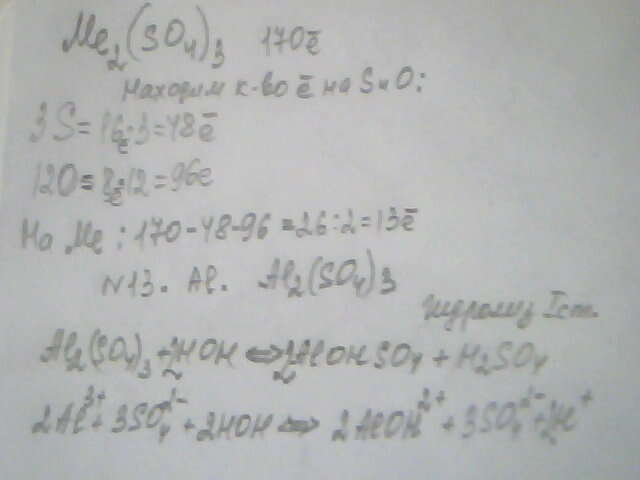 Me₂(SO₄)₃ 170ē
Находим к-во ē на S и O:
3S = 16ē·3 = 48ē
12O = 8ē·12 = 96e
На Me: 170-48-96 = 26:2 = 13ē
N13. Al. Al₂(SO₄)₃
Гидролиз I ст.
Al₂(SO₄)₃ + 2HOH ⇔ 2AlOHSO₄ + H₂SO₄
2Al³⁺ + 3SO₄²⁻ + 2HOH ⇔ 2AlOH²⁺ + 3SO₄²⁻ + 2H⁺